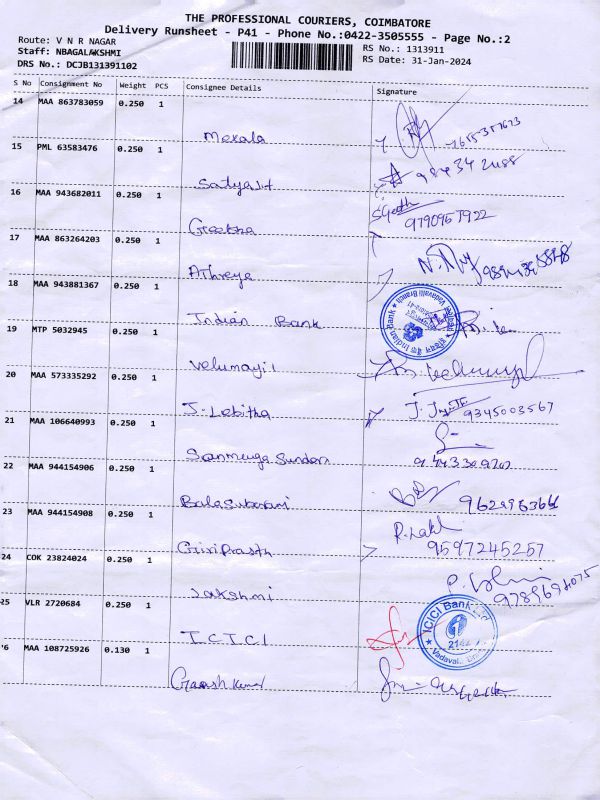 THE PROFESSIONAL COURIERS, COIMBATORE
Delivery Runsheet - P41 - Phone No.:0422-3505555 - Page No.:2
Route: V N R NAGAR
RS No.: 1313911
Staff: NBAGALAKSHMI
RS Date: 31-Jan-2024
DRS No.: DCJB131391102
S No Consignment No Weight PCS Consignee Details Signature
14 MAA 863783059 0.250 1
Mekala
15 PML 63583476 0.250 1
Satyajit
16 MAA 943682011 0.250 1
Geetha
9790957922
17 MAA 863264203 0.250 1
Athreya
18 MAA 943881367 0.250 1
Indian Bank
19 MTP 5032945 0.250 1
Velumayil
20 MAA 573335292 0.250 1
J. Lebitha
9345003567
21 MAA 106640993 0.250 1
Sanmuga Sundari
22 MAA 944154906 0.250 1
Balasubramani
23 MAA 944154908 0.250 1
9597245257
Giri Prasath
24 COK 23824024 0.250 1
Jakshmi
25 VLR 2720684 0.250 1
ICICI Bank
I.C.I.C.I
26 MAA 108725926 0.130 1
Ganesh Kumar